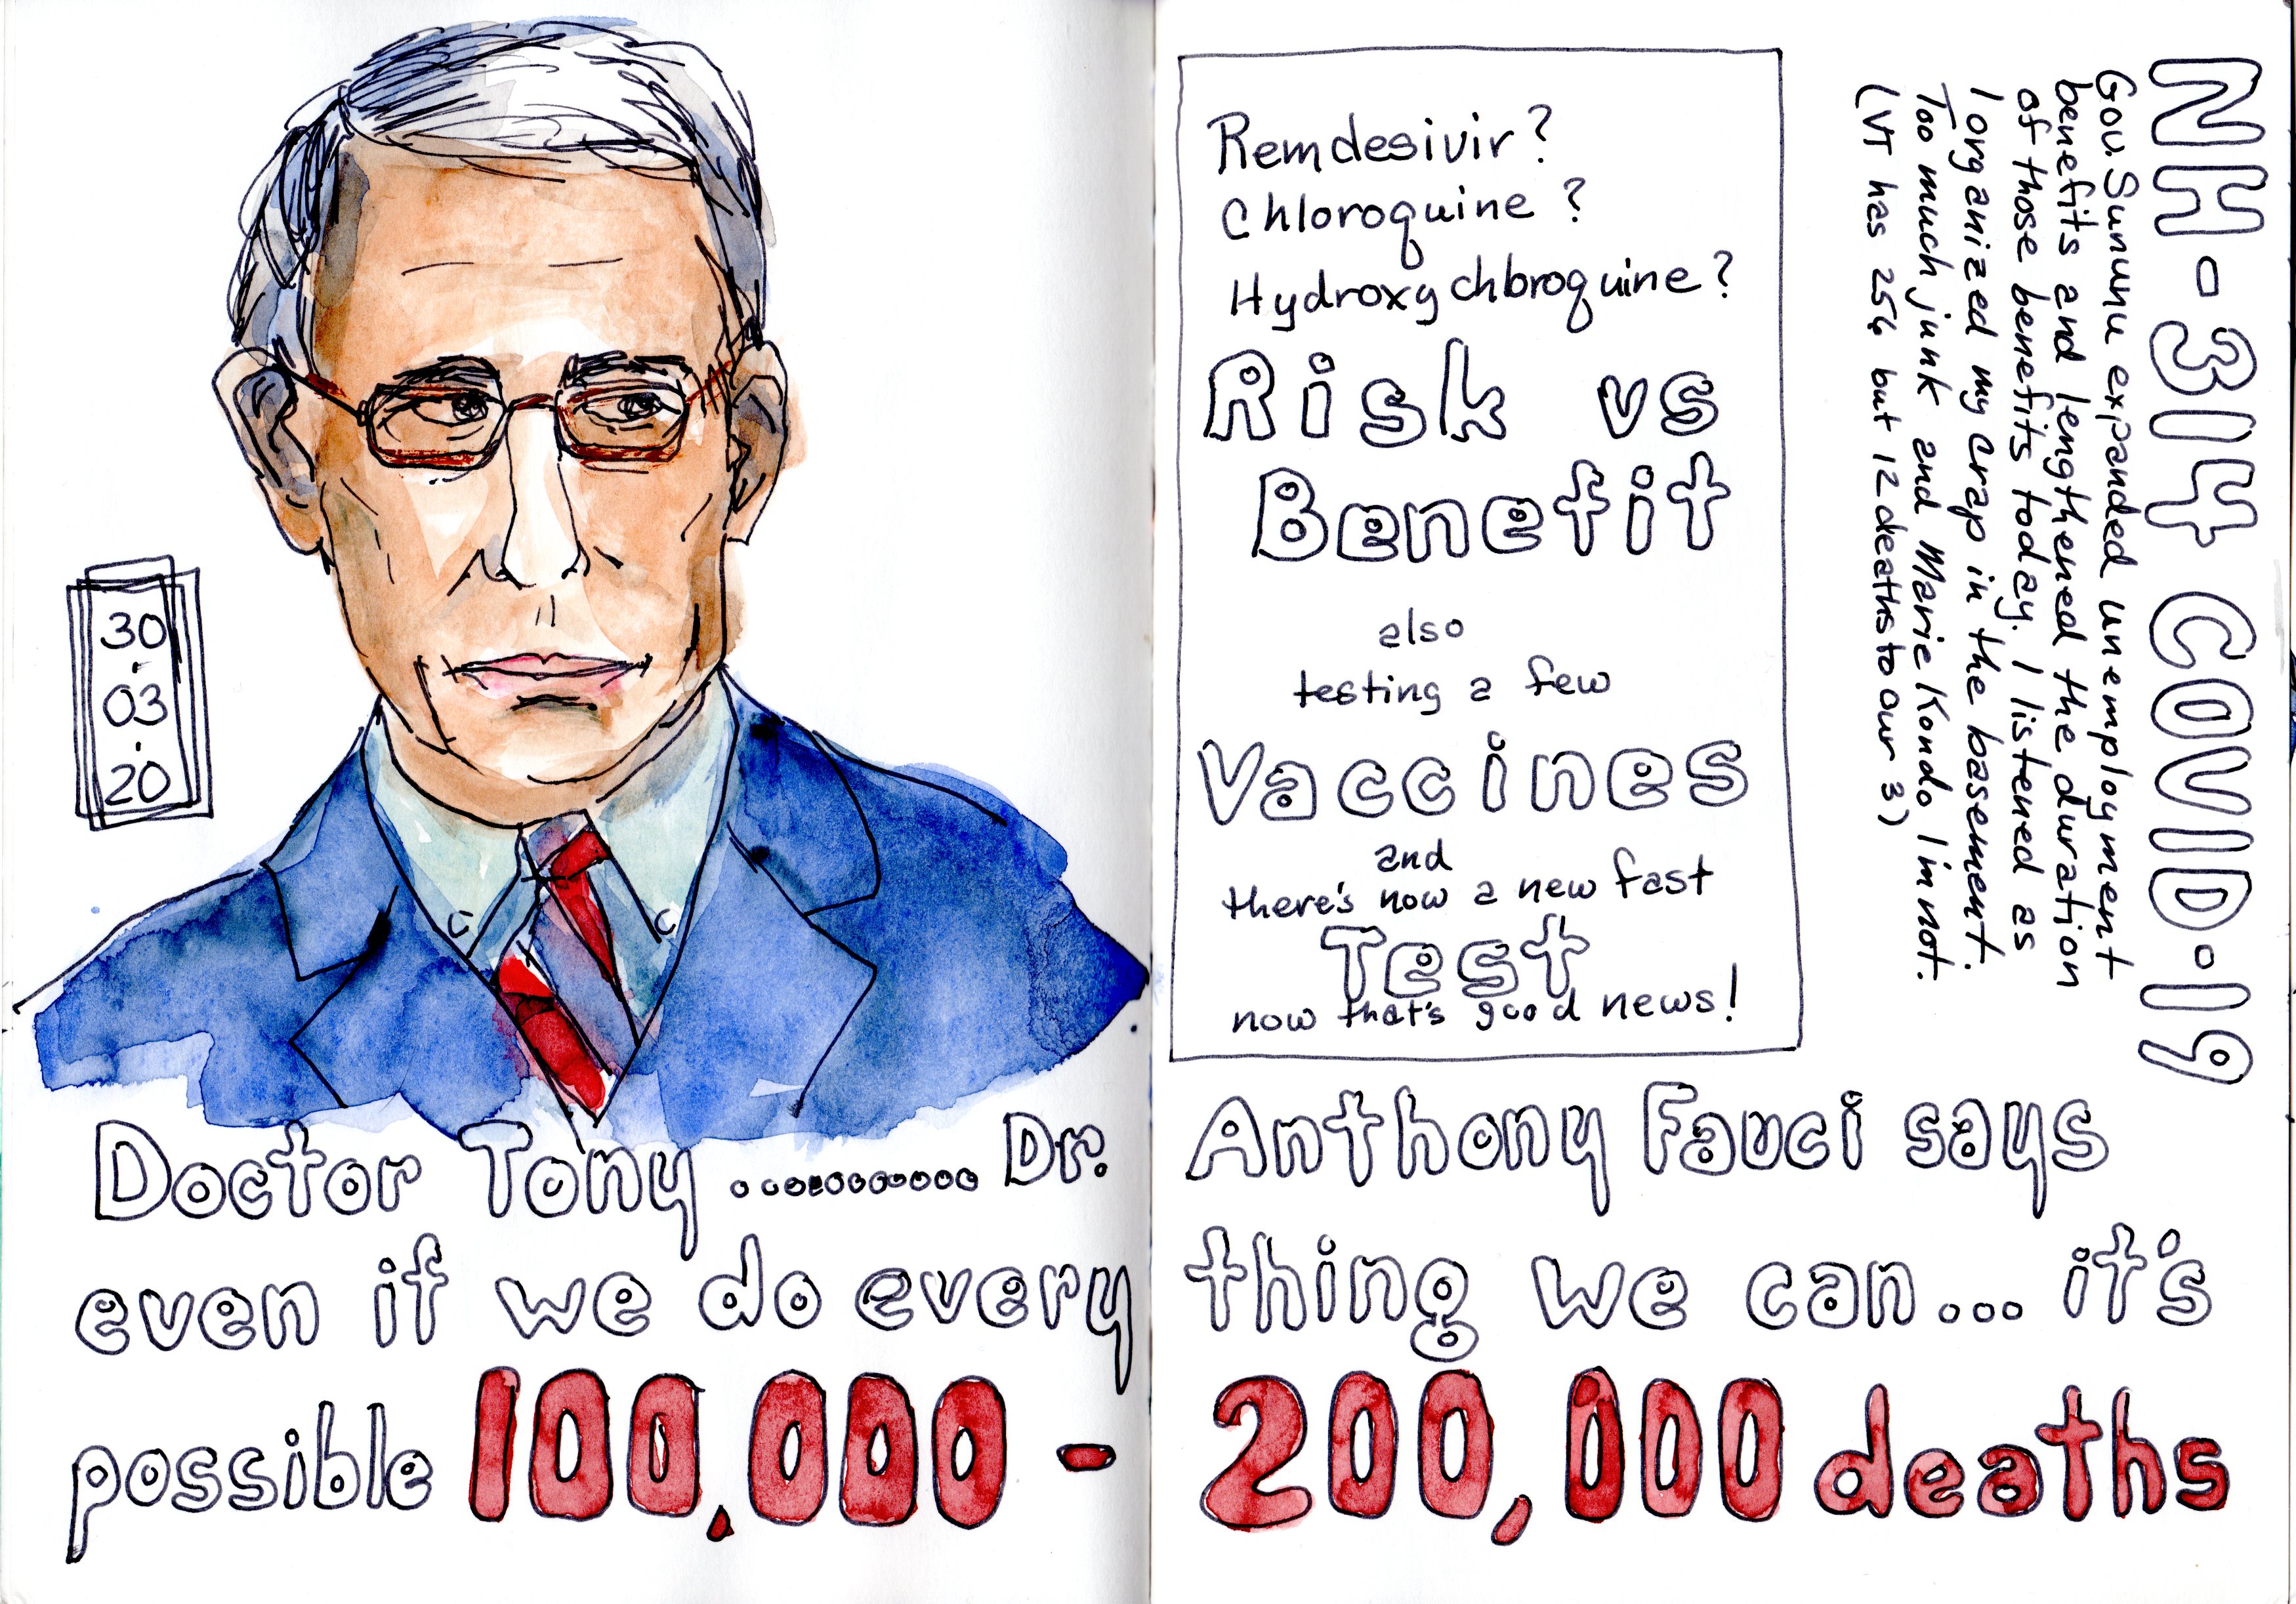 30
.
03
.
20
Doctor Tony ............ Dr.
Anthony Fauci says
even if we do every
thing we can... it's
possible 100,000 -
200,000 deaths
Remdesivir?
Chloroquine?
Hydroxychloroquine?
Risk vs
Benefit
also
testing a few
Vaccines
and
there's now a new fast
Test
now that's good news!
NH-314 COVID-19
Gov. Sununu expanded unemployment
benefits and lengthened the duration
of those benefits today. I listened as
I organized my crap in the basement.
Too much junk and Marie Kondo I'm not.
(VT has 256 but 12 deaths to our 3)